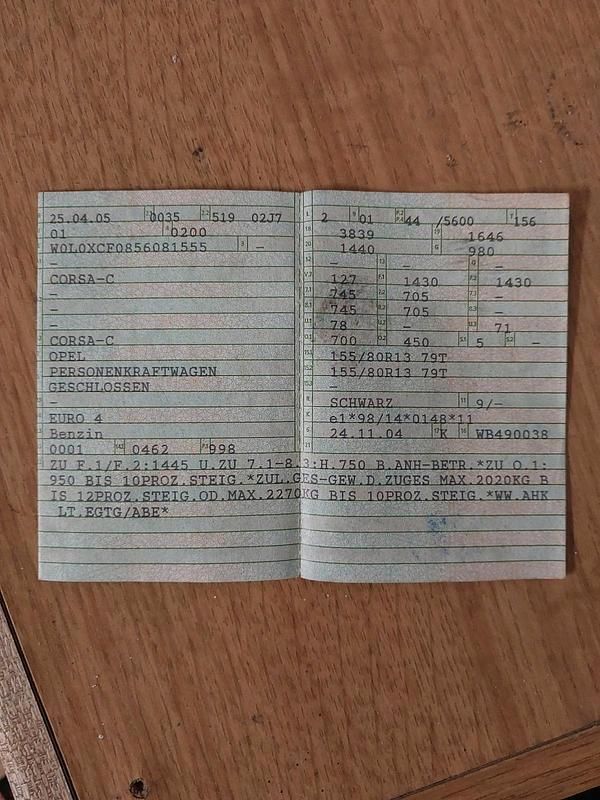 25.04.05 0035 519 02J7
01 0200
W0L0XCF0856081555 –
–
CORSA-C
–
–
–
CORSA-C
OPEL
PERSONENKRAFTWAGEN
GESCHLOSSEN
–
EURO 4
Benzin
0001 0462 998
2 01 44 /5600 156
3839 1646
1440 980
– – –
127 1430 1430
745 705 –
745 705 –
78 – 71
700 450 5 –
155/80R13 79T
155/80R13 79T
–
SCHWARZ 9/–
e1*98/14*0148*11
24.11.04 K WB490038
ZU F.1/F.2:1445 U.ZU 7.1-8.3:H.750 B.ANH-BETR.*ZU O.1:
950 BIS 10PROZ.STEIG.*ZUL.GES-GEW.D.ZUGES MAX.2020KG B
IS 12PROZ.STEIG.OD.MAX.2270KG BIS 10PROZ.STEIG.*WW.AHK
LT.EGTG/ABE*